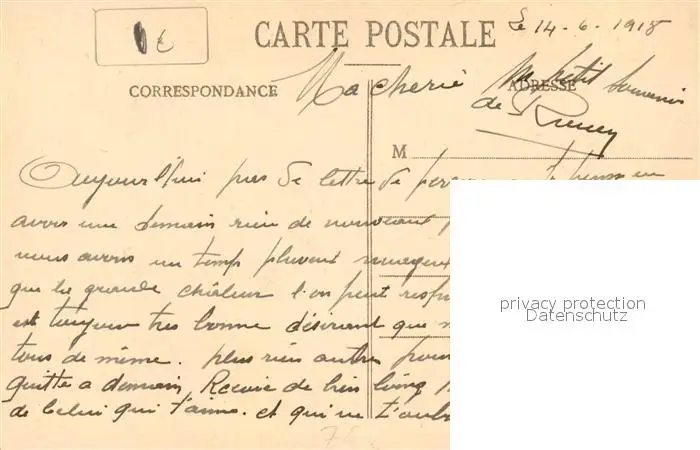 CARTE POSTALE
Le 14-6-1918
CORRESPONDANCE
ADRESSE
Ma cherie
un petit souvenir
de
M
Aujourd'hui pas de lettre de
avoir une demain rien de nouveau
nous avons un temps pluvieux
que la grande chaleur l'on peut
est toujours tres bonne désirant que
tous de même. plus rien autre pour
quitte a demain, Recoie de bien loing
de Celui qui t'aime. et qui ne t'oubl
privacy protection
Datenschutz